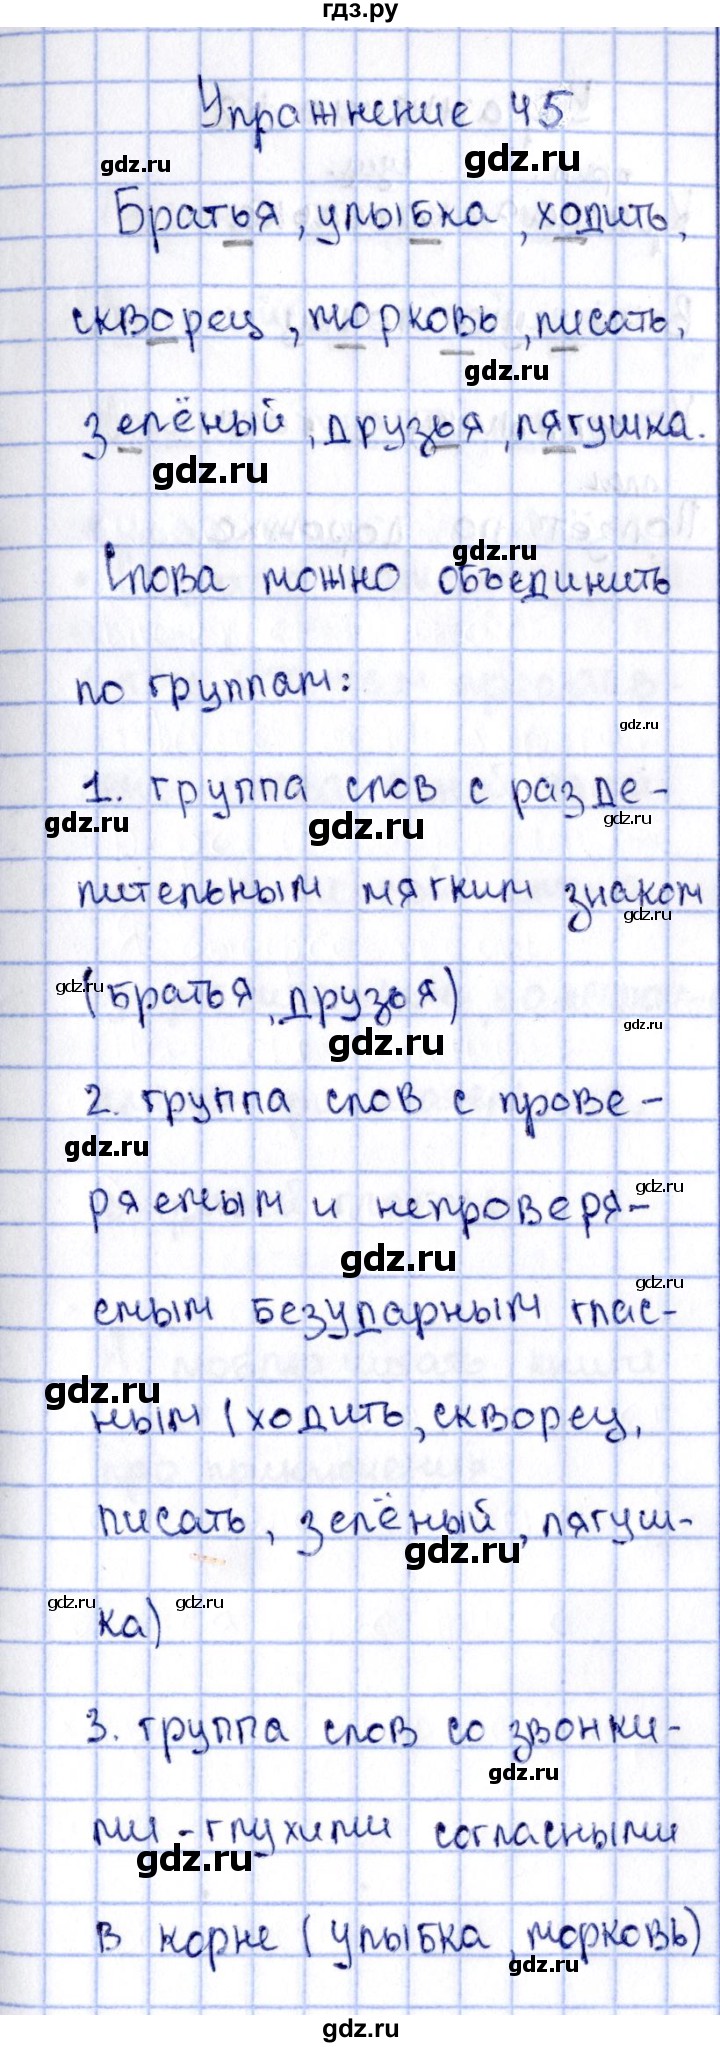 гдз.ру
Упражнение 45
gdz.ru gdz.ru
Братья, улыбка, ходить,
скворец, морковь, писать,
gdz.ru
зелёный, друзья, лягушка.
gdz.ru
gdz.ru
Слова можно объединить
по группам:
gdz.ru
1. группа слов с разде-
gdz.ru gdz.ru gdz.ru
лительным мягким знаком
gdz.ru
gdz.ru
(братья, друзья)
gdz.ru
gdz.ru
2. группа слов с прове-
gdz.ru
gdz.ru
ряемым и непроверя-
gdz.ru
gdz.ru
емым безударным глас-
gdz.ru
ным (ходить, скворец,
писать, зелёный, лягуш-
gdz.ru
gdz.ru gdz.ru
ка)
3. группа слов со звонки-
gdz.ru
ми-глухими согласными
gdz.ru
в корне (улыбка, морковь)
gdz.ru
gdz.ru